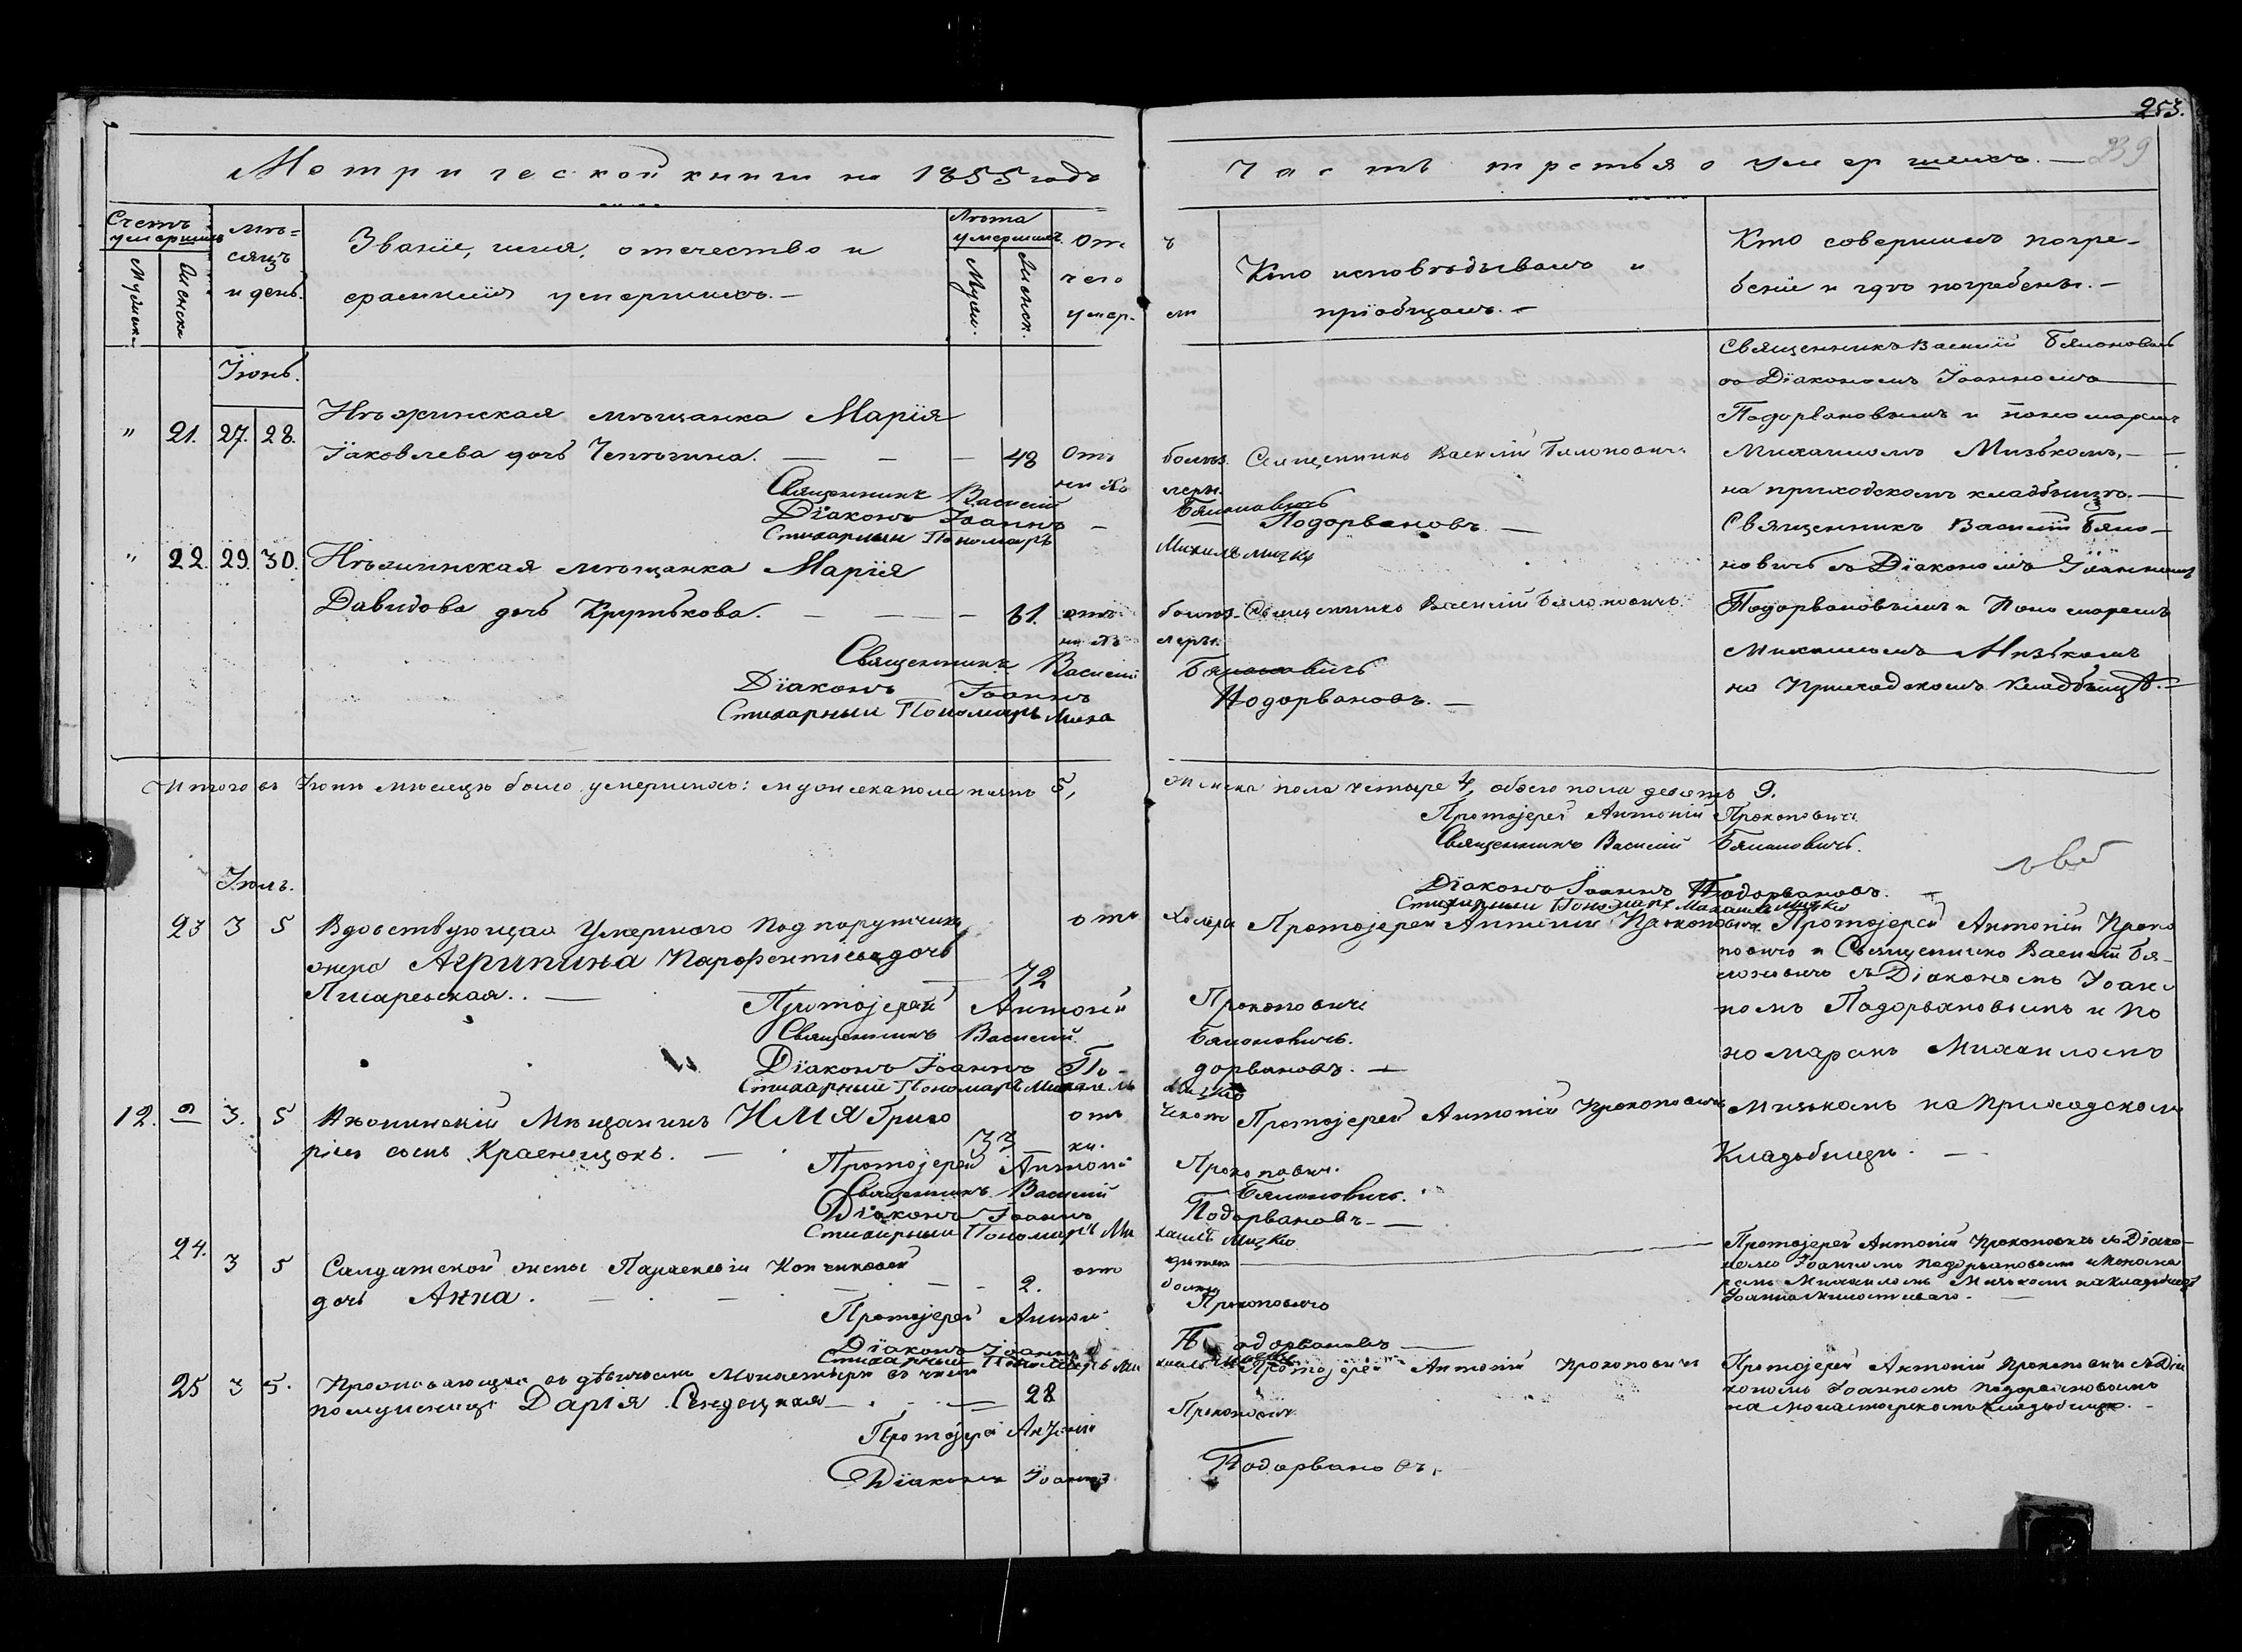 253.
239
Метрической книги на 1855 годъ
Часть третья о умершихъ. —
Счетъ умершихъ
Мужска
Женска
мѣсяцъ и день.
Званіе, имя, отечество и
фамилія умершихъ. —
Лѣта умершихъ
Муж.
Женск.
Отъ чего умер.
Кто исповѣдывалъ и
пріобщалъ. —
Кто совершилъ погре-
беніе и гдѣ погребены. —
Іюнь.
" 21. 27. 28. Нѣжинская мѣщанка Марія
Іаковлева дочь — 48 Отъ болѣз. Священникъ Василій Бялоновичъ
Священникъ Василій Бялоновичъ
Діаконъ Іоаннъ Подорвановъ. —
Стихарный Пономарь Михаилъ Мизко
Священникъ Василій Бялоновичъ
со Діакономъ Іоанномъ
Подорвановымъ и пономаремъ
Михаиломъ Мизькомъ, —
на приходскомъ кладбищѣ. —
" 22. 29. 30. Нѣжинская мѣщанка Марія
Давидова дочь Крутькова. — 61. отъ болѣз- Священникъ Василій Бялоновичъ.
Священникъ Василій Бялоновичъ
Діаконъ Іоаннъ Подорвановъ. —
Стихарный Пономарь Миха
Священникъ Василій Бяло-
новичъ съ Діакономъ Іоанномъ
Подорвановымъ и Пономаремъ
Михаиломъ Мизькомъ
на Приходскомъ Кладбищѣ. —
Итого въ Іюнѣ мѣсяцѣ было умершихъ: мужеска пола пять 5, женска пола четыре 4, обоего пола девять 9.
Протоіерей Антоній Прокоповичъ
Священникъ Василій Бялоновичъ.
Діаконъ Іоаннъ Подорвановъ. —
Стихарный Пономарь Михаилъ Мизько
Іюль.
23 3 5 Вдовствующая умершого Подпорутчика отъ Холеры Протоіерей Антоній Прокоповичъ
жена Агрипина Парфентіева дочь 72
Писаревская. . —
Протоіерей Антоній Прокоповичъ
Священникъ Василій Бялоновичъ.
Діаконъ Іоаннъ Подорвановъ. —
Стихарный Пономарь Михаилъ Мизко
Протоіерей Антоній Проко
повичъ и Священникъ Василій Бя-
лоновичъ съ Діакономъ Іоан-
номъ Подорвановымъ и По
номаремъ Михаиломъ
Мизькомъ на Приходскомъ
Кладбищѣ. —
12. 3. 5 Нѣжинскій Мѣщанинъ Григо отъ Протоіерей Антоній Прокоповичъ
рьевъ сынъ 33
Протоіерей Антоній Прокоповичъ.
Священникъ Василій Бялоновичъ.
Діаконъ Іоаннъ Подорвановъ. —
Стихарный Пономарь Михаилъ Мизко
24. 3 5 Салдатской жены Параскевіи отъ
дочь Анна. — 2.
Протоіерей Антоній Прокоповичъ
Діаконъ Іоаннъ Подорвановъ
Стихарный Пономарь Михаилъ Мизко
Протоіерей Антоній Прокоповичъ съ Діако-
номъ Іоанномъ Подорвановымъ и Понома
ремъ Михаиломъ Мизькомъ на кладбищѣ
Іоанна Милостиваго. —
25 3 5. Проживающая въ дѣвичьемъ Монастырѣ въ числѣ Протоіерей Антоній Прокоповичъ
послушницъ Дарія — 28
Протоіерей Антоній Прокоповичъ
Діаконъ Іоаннъ Подорвановъ.
Протоіерей Антоній Прокоповичъ съ Діа
кономъ Іоанномъ Подорвановымъ
на Монастырскомъ кладбищѣ. —